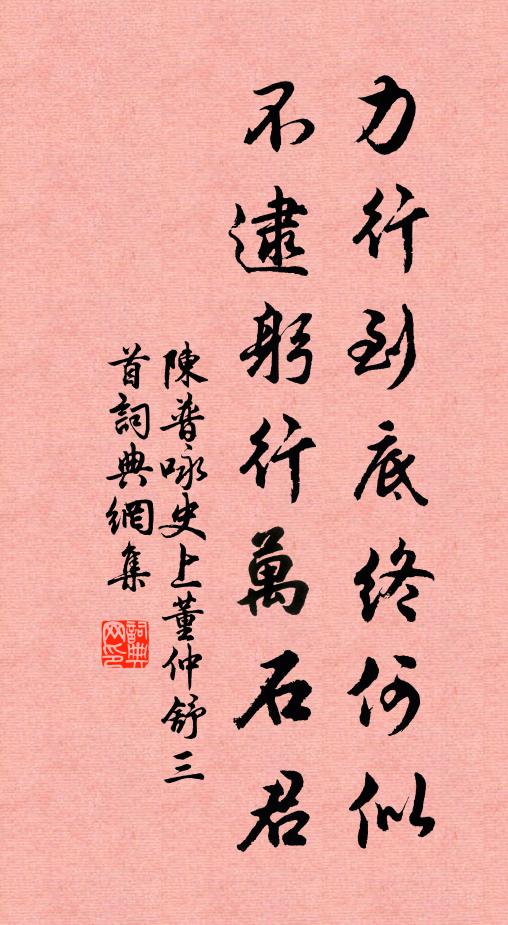 力行到底終何似
不逮躬行萬石君
陳普咏史上董仲舒三
首詞典網集
詞典网印